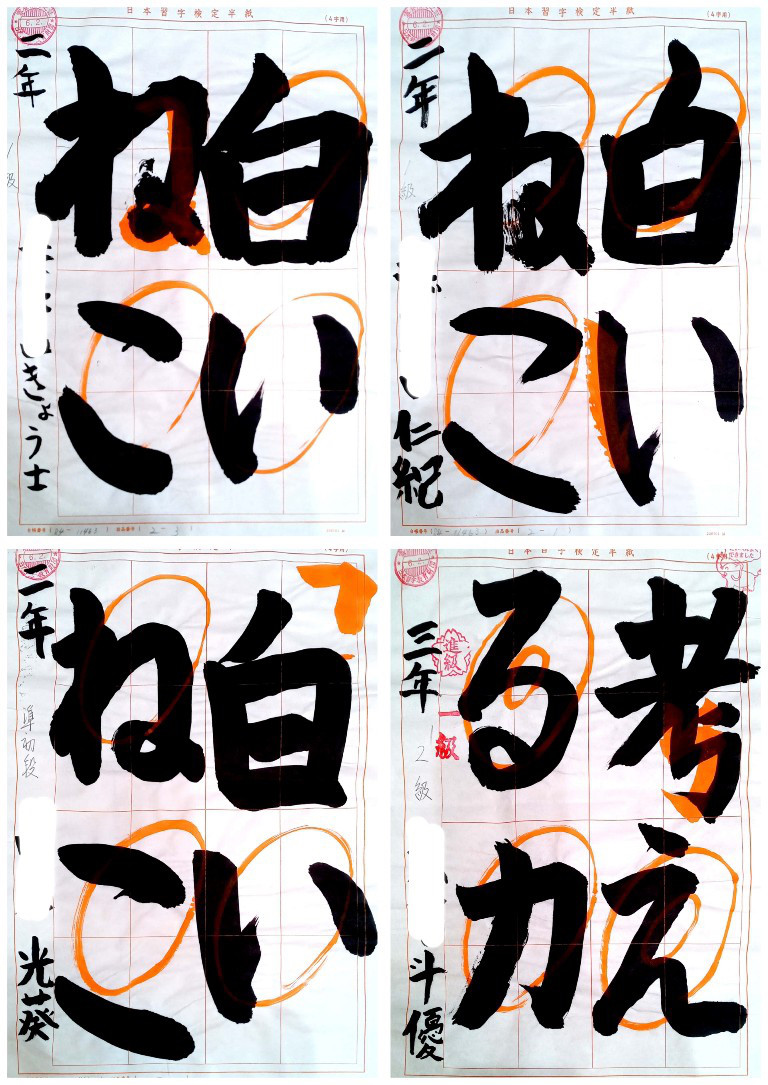 日本習字検定半紙
(4字用)
6.2.
白い
ねこ
二年
1級
きょう士
日本習字検定半紙
(4字用)
6.2.
白い
ねこ
二年
1級
仁紀
白い
ねこ
二年
準初段
光葵
日本習字検定半紙
(4字用)
6.2.
できました
考え
る力
三年
進級
一級
2級
斗優